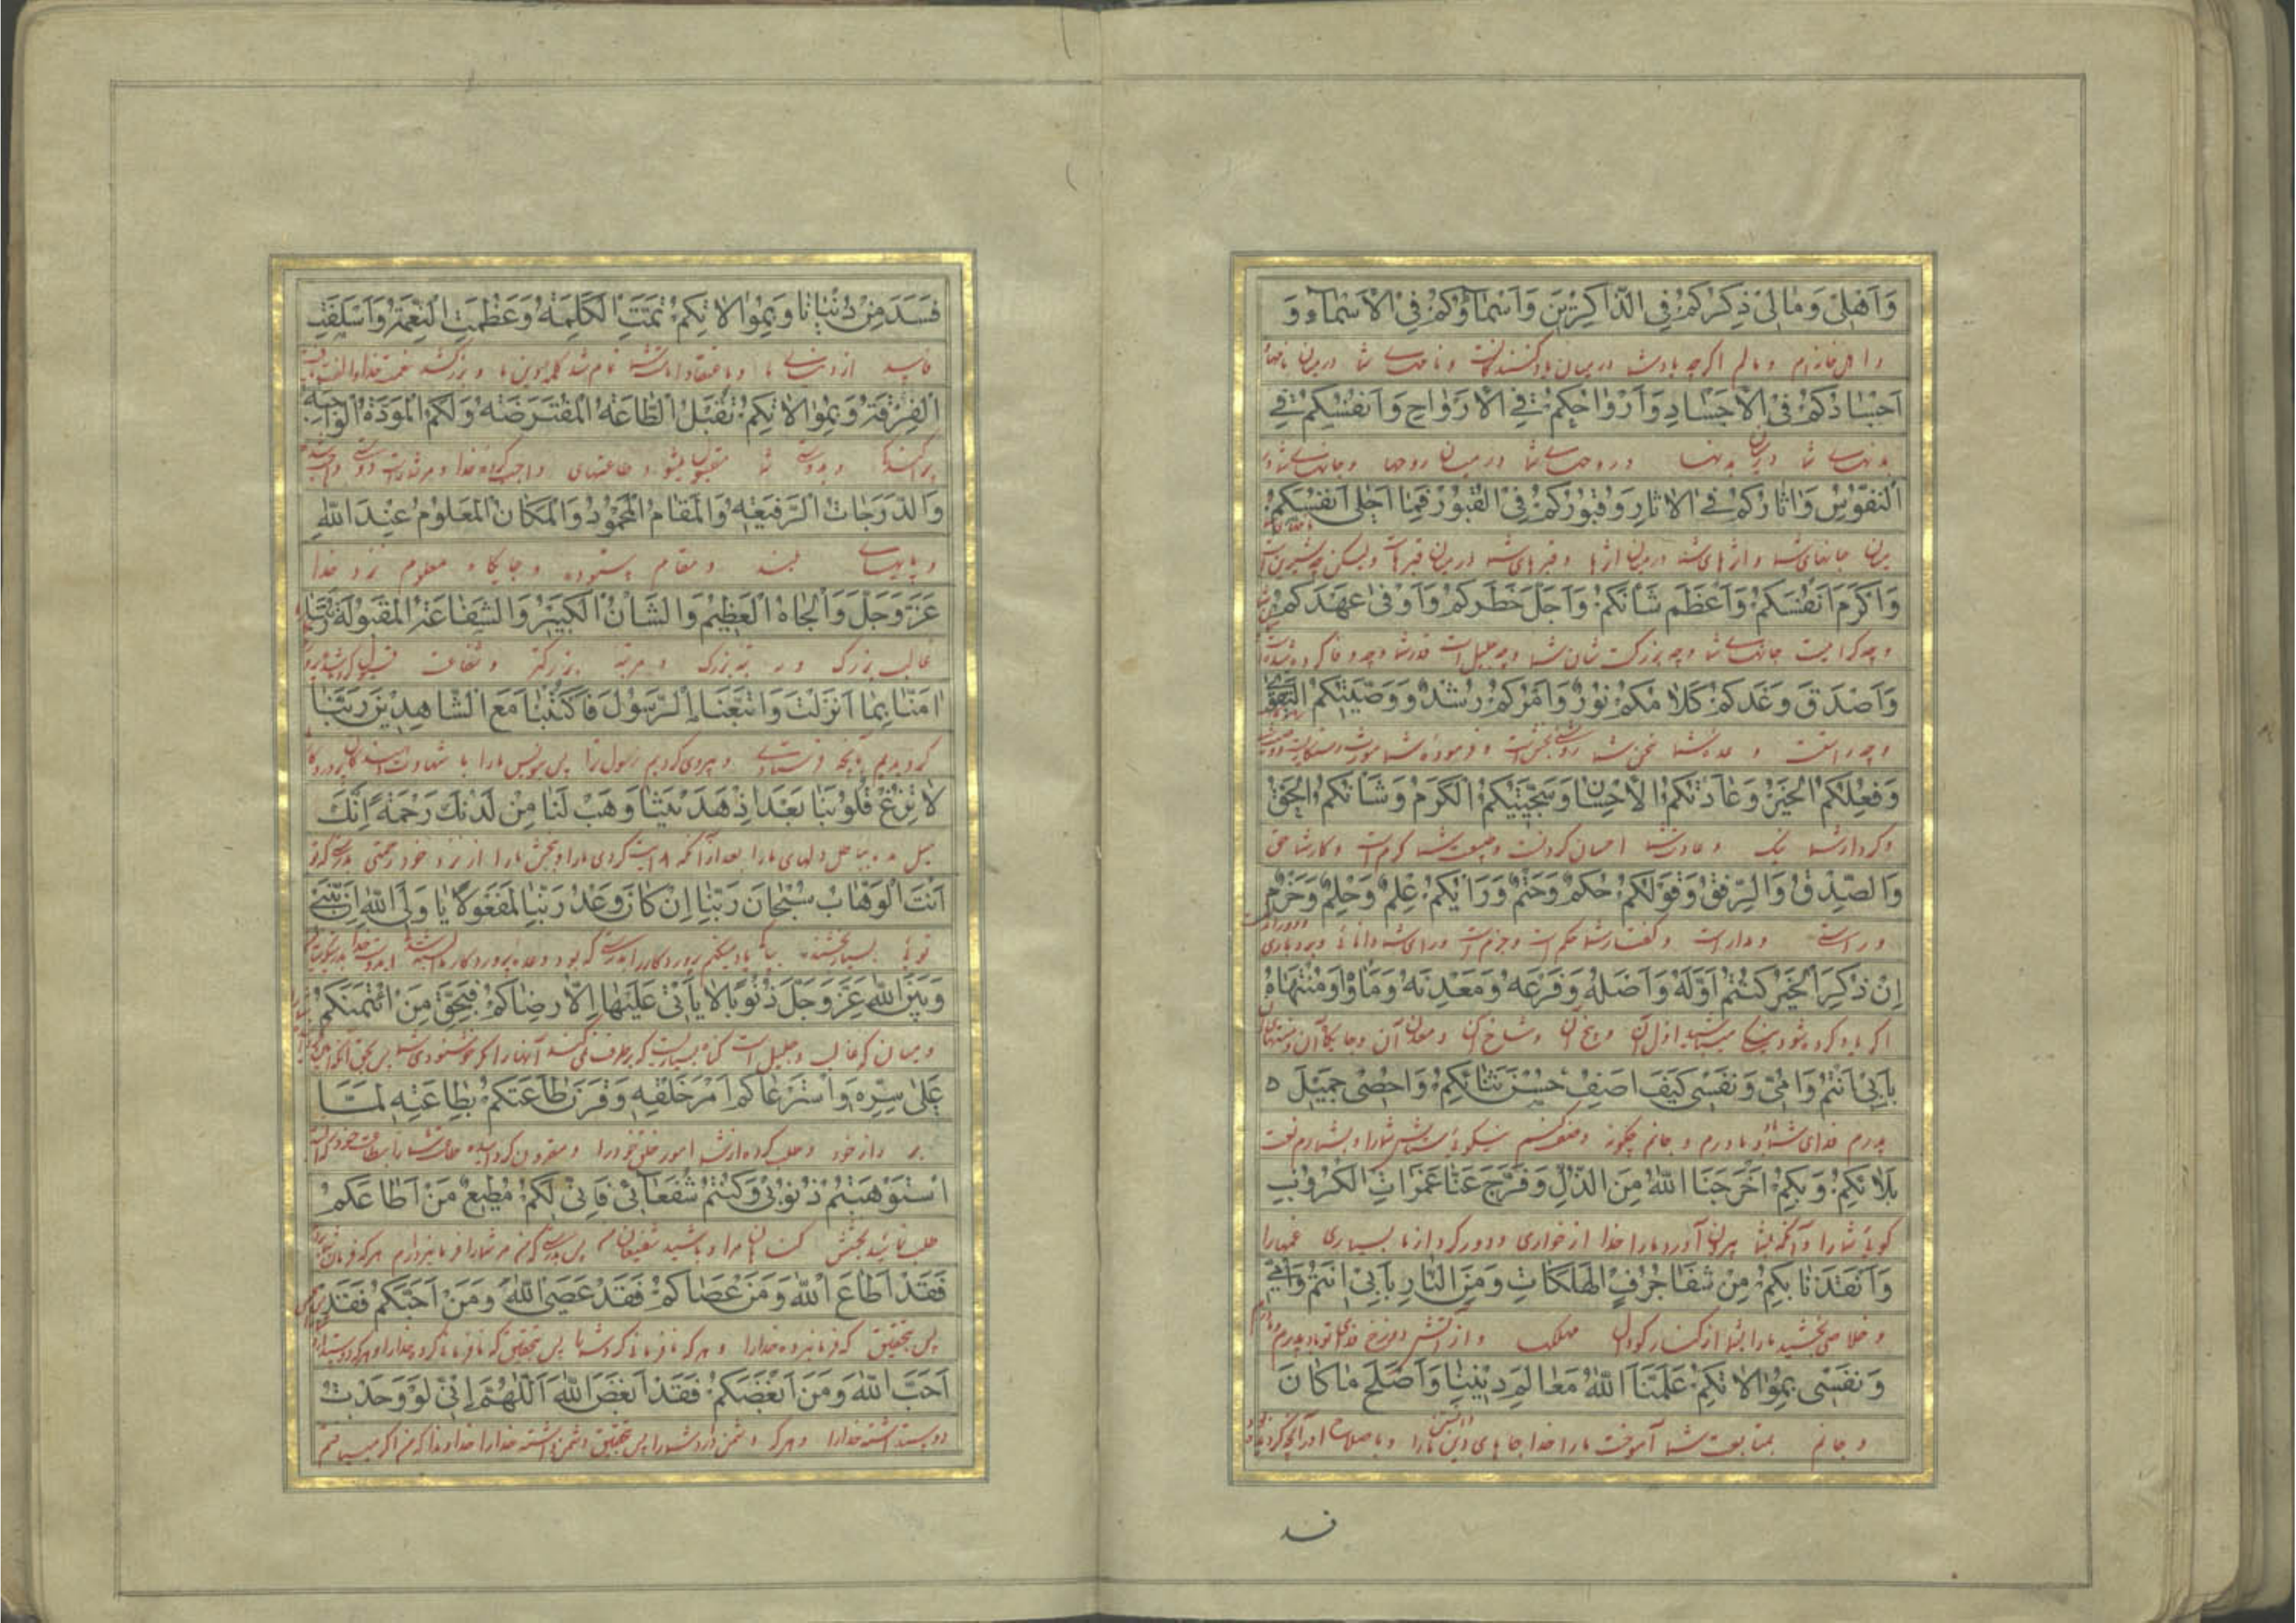 وَاَهْلی وَمٰالی ذِکْرُکُمْ فِی الذّٰاکِرینَ وَاَسْمٰآؤُکُمْ فِی الْاَسْمٰاءِ وَ
و اهل خانه‌ام و مالم اگرچه یاد شما در میان یاد کنندگانست و نامهای شما در میان نامها
اَجْسٰادُکُمْ فِی الْاَجْسٰادِ وَاَرْوٰاحُکُمْ فِی الْاَرْوٰاحِ وَاَنْفُسُکُمْ فِی
بدنهای شما در میان بدنها و روحهای شما در میان روحها و جانهای شما در
النُّفُوسِ وَاٰثٰارُکُمْ فِی الْاٰثٰارِ وَقُبُورُکُمْ فِی الْقُبُورِ فَمٰا اَحْلیٰ اَنْفُسَکُمْ
میان جانهای شما و اثرهای شما در میان اثرها و قبرهای شما در میان قبرهاست ولیکن چه شیرین است
وَاَکْرَمَ اَنْفُسَکُمْ وَاَعْظَمَ شَاْنَکُمْ وَاَجَلَّ خَطَرَکُمْ وَاَوْفیٰ عَهْدَکُمْ
و چه گرامیست جانهای شما و چه بزرگست شان شما و چه جلیل است قدر شما و چه وفا کرده شده است
وَاَصْدَقَ وَعْدَکُمْ کَلٰامُکُمْ نُورٌ وَاَمْرُکُمْ رُشْدٌ وَوَصِیَّتُکُمُ التَّقْویٰ
و چه راستست وعده شما سخن شما روشنی بخش است و فرموده شما
وَفِعْلُکُمُ الْخَیْرُ وَعٰادَتُکُمُ الْاِحْسٰانُ وَسَجِیَّتُکُمُ الْکَرَمُ وَشَاْنُکُمُ الْحَقُّ
و کردار شما نیک و عادت شما احسان کردنست و طبیعت شما کرم است و کار شما حق
وَالصِّدْقُ وَالرِّفْقُ وَقَوْلُکُمْ حُکْمٌ وَحَتْمٌ وَرَاْیُکُمْ عِلْمٌ وَحِلْمٌ وَحَزْمٌ
و راستی و مداراست و گفتار شما حکم است و جزم است و رای شما دانائی و بردباری
اِنْ ذُکِرَ الْخَیْرُ کُنْتُمْ اَوَّلَهُ وَاَصْلَهُ وَفَرْعَهُ وَمَعْدِنَهُ وَمَاْوٰاهُ وَمُنْتَهٰاهُ
اگر یاد کرده شود نیکی میباشید اول آن و بیخ آن و شاخ آن و معدن آن و جایگاه آن و منتهای
بِاَبی اَنْتُمْ وَاُمّی وَنَفْسی کَیْفَ اَصِفُ حُسْنَ ثَنٰائِکُمْ وَاُحْصی جَمیلَ ه
پدرم فدای شما و مادرم و جانم چگونه وصف کنم نیکوئی ستایش شما را و بشمارم نعمت
بَلٰائِکُمْ وَبِکُمْ اَخْرَجَنَا اللّٰهُ مِنَ الذُّلِّ وَفَرَّجَ عَنّٰا غَمَرٰاتِ الْکُرُوبِ
نیکوی شما را و آنکه بشما بیرون آورد ما را خدا از خواری و دور کرد از ما بسیاری غمها را
وَاَنْقَذَنٰا بِکُمْ مِنْ شَفٰا جُرُفِ الْهَلَکٰاتِ وَمِنَ النّٰارِ بِاَبی اَنْتُمْ وَاُمّی
و خلاصی بخشید ما را بشما از کنار گودال مهلک و از آتش دوزخ فدای تو باد پدرم و مادرم
وَنَفْسی بِمُوٰالٰاتِکُمْ عَلَّمَنَا اللّٰهُ مَعٰالِمَ دینِنٰا وَاَصْلَحَ مٰا کٰانَ
و جانم بمتابعت شما آموخت ما را خدا جاهای دانستن دین ما را و باصلاح آورد آنچه
فسد
فَسَدَ مِنْ دُنْیٰانٰا وَبِمُوٰالٰاتِکُمْ تَمَّتِ الْکَلِمَةُ وَعَظُمَتِ النِّعْمَةُ وَائْتَلَفَتِ
فاسد از دنیای ما و باعتقاد امامت شما تمام شد کلمه و بزرگ شد نعمت خدا و الفت یافت
الْفِرْقَةُ وَبِمُوٰالٰاتِکُمْ تُقْبَلُ الطّٰاعَةُ الْمُفْتَرَضَةُ وَلَکُمُ الْمَوَدَّةُ الْوٰاجِبَةُ
پراکنده‌ها و بدوستی شما مقبول میشود طاعتهای واجب کرده خدا و مر شما راست دوستی واجب شده
وَالدَّرَجٰاتُ الرَّفیعَةُ وَالْمَقٰامُ الْمَحْمُودُ وَالْمَکٰانُ الْمَعْلُومُ عِنْدَ اللّٰهِ
و پایهای بلند و مقام ستوده و جایگاه معلوم نزد خدا
عَزَّ وَجَلَّ وَالْجٰاهُ الْعَظیمُ وَالشَّاْنُ الْکَبیرُ وَالشَّفٰاعَةُ الْمَقْبُولَةُ رَبَّنٰا
غالب بزرگ و رتبه بزرگ و مرتبه بزرگتر و شفاعت قبول کرده شده
اٰمَنّٰا بِمٰا اَنْزَلْتَ وَاتَّبَعْنَا الرَّسُولَ فَاکْتُبْنٰا مَعَ الشّٰاهِدینَ رَبَّنٰا
گرویدیم بآنچه فرستادی و پیروی کردیم رسول ترا پس بنویس ما را با شهادت دهندگان پروردگارا
لٰا تُزِغْ قُلُوبَنٰا بَعْدَ اِذْ هَدَیْتَنٰا وَهَبْ لَنٰا مِنْ لَدُنْکَ رَحْمَةً اِنَّکَ
میل مده بباطل دلهای ما را بعد از آنکه هدایت کردی ما را و ببخش ما را از نزد خود رحمتی بدرستی که تو
اَنْتَ الْوَهّٰابُ سُبْحٰانَ رَبِّنٰا اِنْ کٰانَ وَعْدُ رَبِّنٰا لَمَفْعُولًا یٰا وَلِیَّ اللّٰهِ اِنَّ بَیْنی
توئی بسیار بخشنده بپاکی یاد میکنم پروردگار را بدرستی که بود وعده پروردگار ما
وَبَیْنَ اللّٰهِ عَزَّ وَجَلَّ ذُنُوبًا لٰا یَاْتی عَلَیْهٰا اِلّٰا رِضٰاکُمْ فَبِحَقِّ مَنِ ائْتَمَنَکُمْ
و میان خدا که غالب و جلیل است گناه بسیاریست که برطرف نمی‌کند آنها را مگر خوشنودی شما پس بحق آنکه امین
عَلیٰ سِرِّهِ وَاسْتَرْعٰاکُمْ اَمْرَ خَلْقِهِ وَقَرَنَ طٰاعَتَکُمْ بِطٰاعَتِهِ لَمَّا
بر راز خود و طلب کرده از شما امور خلق خود را و مقرون گردانیده طاعت شما را بطاعت خود
اسْتَوْهَبْتُمْ ذُنُوبی وَکُنْتُمْ شُفَعٰائی فَاِنّی لَکُمْ مُطیعٌ مَنْ اَطٰاعَکُمْ
طلب نمائید بخشش گناهان مرا و باشید شفیعان من پس بدرستی که من مر شما را فرمانبردارم هر که فرمان برد
فَقَدْ اَطٰاعَ اللّٰهَ وَمَنْ عَصٰاکُمْ فَقَدْ عَصَی اللّٰهَ وَمَنْ اَحَبَّکُمْ فَقَدْ
پس بتحقیق که فرمانبرده خدا را و هر که نافرمانی کرد شما را پس بتحقیق که نافرمانی کرده خدا را و هر که دوست دارد
اَحَبَّ اللّٰهَ وَمَنْ اَبْغَضَکُمْ فَقَدْ اَبْغَضَ اللّٰهَ اَللّٰهُمَّ اِنّی لَوْ وَجَدْتُ
دوست داشته خدا را و هر که دشمن دارد شما را پس بتحقیق دشمن داشته خدا را خداوندا که من اگر مییافتم